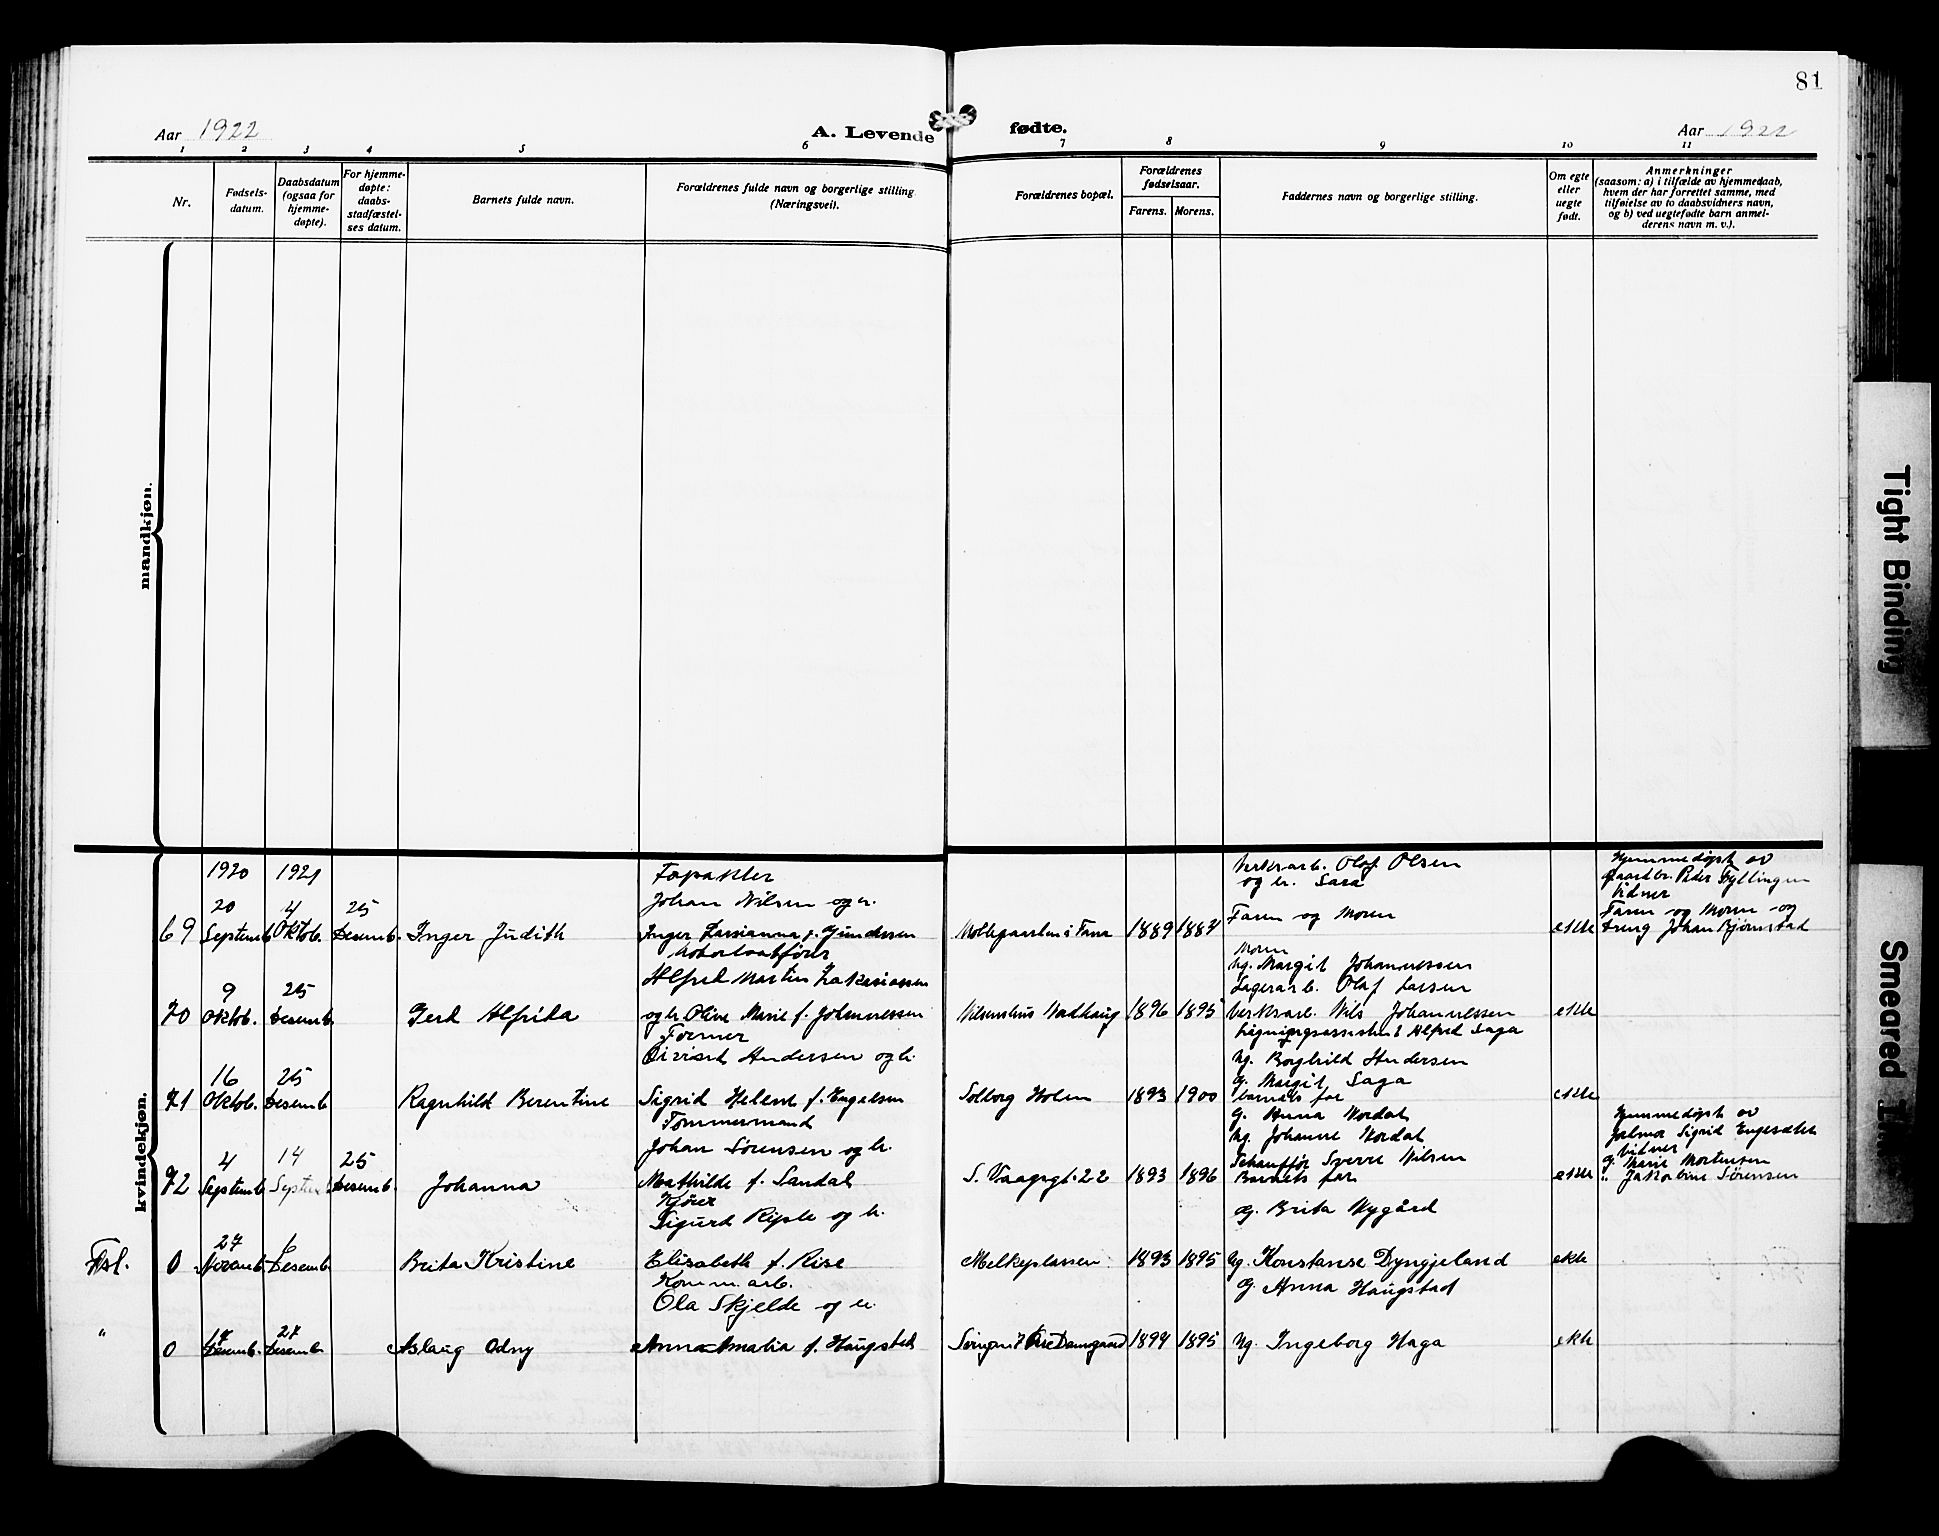 81
Aar 1922
A. Levende fødte.
Aar 1922
1 2 3 4 5 6 7 8 9 10 11
Nr.
Fødsels-
datum.
Daabsdatum
(ogsaa for
hjemme-
døpte).
For hjemme-
døpte:
daabs-
stadfæstel-
ses datum.
Barnets fulde navn.
Forældrenes fulde navn og borgerlige stilling.
(Næringsvei).
Forældrenes bopæl.
Forældrenes
fødselsaar.
Farens. Morens.
Faddernes navn og borgerlige stilling.
Om egte
eller
uegte
født.
Anmerkninger
(saasom: a) i tilfælde av hjemmedaab,
hvem der har forrettet samme, med
tilføielse av to daabsvidners navn,
og b) ved uegtefødte barn anmel-
derens navn m. v.).
mandkjøn.
kvindekjøn.
69
1920
20
Septemb.
1921
4
Oktob.
25
Desemb.
Inger Judith
Johan Nilsen og h.
Inger Larsianna f. Gundersen
Møllegaarden i Fana
1889
Verksarb. Olaf Olsen
og h. Sara
Faren og Moren
ekte
Hjemmedøpt av
Gaardbr. Peder Fyllingen
Vidner
Faren og Moren og
Dreng Johan Bjørnstad
70
9
Oktob.
25
Desemb.
Gerd Alfrida
Motorbaatfører
Alfred Martin Zakariassen
og h. Olive Marie f. Johannessen
1896
1895
Moren
Ug. Margit Johannessen
Lagerarb. Olaf Larsen
Verksarb. Nils Johannessen
ekte
71
16
Oktob.
25
Desemb.
Ragnhild Berentine
Former
Eivind Andersen og h.
Sigrid Helene f. Engelsen
Solborg Holen
1893
1900
Ligningsassistent Alfred Saga
Ug. Borghild Andersen
G. Margit Saga
barnets far
ekte
72
4
Septemb.
14
Septem
25
Desemb.
Johanna
Tømmermand
Johan Sørensen og h.
Mathilde f. Sandal
S. Vaagsgt. 22
1893
1896
G. Anna Nordal
Ug. Johanne Nordal
Schauffør Sverre Nilsen
Barnets far
ekte
Hjemmedøpt av
Jordmor Sigrid Engesæter
Vidner
G. Marie Mortensen
" Jakobine Sørensen
Fsl.
0
27
Novemb.
6
Desemb.
Brita Kristine
Kjører
Sigurd Riple og h.
Elisabeth f. Rise
Melkeplassen
1893
1895
G. Brita Nygård
Ug. Konstanse Dyngjeland
G. Anna Haugstad
ekte
"
0
17
Desemb.
27
Desemb.
Aslaug Odny
Komm. arb.
Ola Skjelde og h.
Anna Amalia f. Haugstad
1894
1895
Ug. Ingeborg Haga
ekte
Tight Binding
Smeared